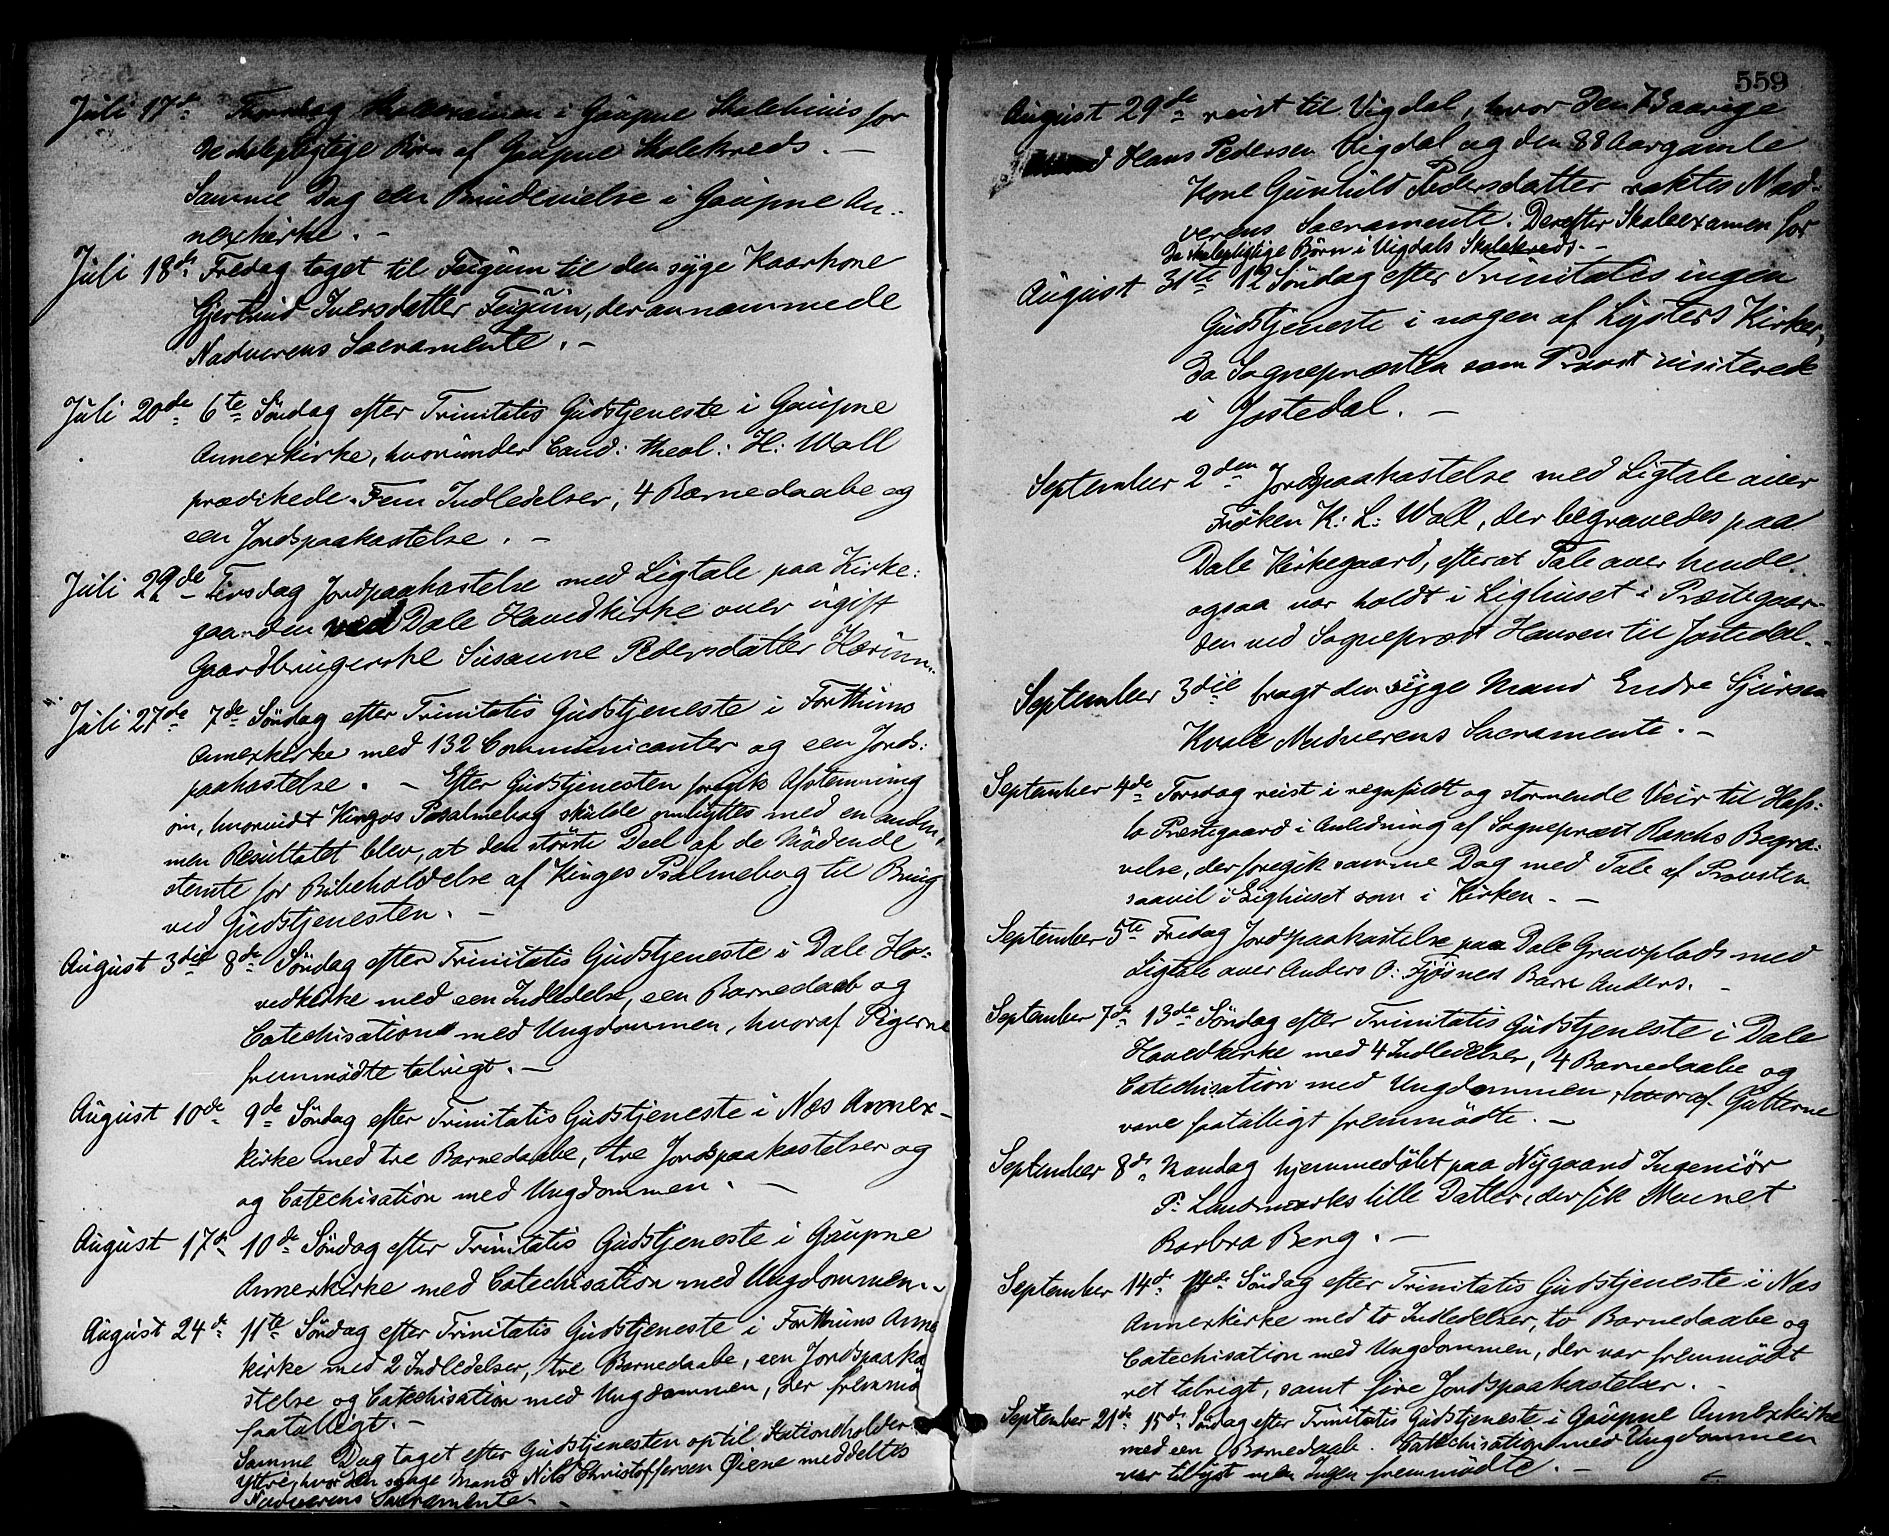 Juli 17de Torsdag Skoleexamen i Gaupne Skolehuus for
de skolepligtige Børn af Gaupne Skolekreds. –
Samme Dag een Brudevielse i Gaupne An-
nexkirke. –
Juli 18de Fredag toget til Feigum til den syge Kaarkone
Gjertrud Iversdatter Feigum, der annammede
Nadverens Sacramente. –
Juli 20de 6te Søndag efter Trinitatis Gudstjeneste i Gaupne
Annexkirke, hvorunder Cand: theol: H: Wall
prædikede. Fem Indledelser, 4 Barnedaabe og
een Jordspaakastelse. –
Juli 22de Tirsdag Jordpaakastelse med Ligtale paa Kirke:
gaarden ved Dale Hovedkirke over ugift
Gaardbrugerske Susanne Pedersdatter Hærum.
Juli 27de 7de Søndag efter Trinitatis Gudstjeneste i Forthuns
Annexkirke med 132 Communicanter og een Jords:
paakastelse. – Efter Gudstjenesten foregik Afstemning
om, hvorvidt Kingos Psalmebog skulde ombyttes med en anden,
men Resultatet blev, at den største Deel af de Mødende
stemte for Bibeholdelse af Kingos Psalmebog til Brug
ved Gudstjenesten. –
August 3die 8de Søndag efter Trinitatis Gudstjeneste i Dale Ho-
vedkirke med een Indledelse, een Barnedaab og
Catechisation med Ungdommen, hvoraf Pigerne
fremmødte talrigt. –
August 10de 9de Søndag efter Trinitatis Gudstjeneste i Næs Annex-
kirke med tre Barnedaabe, tre Jordspaakastelser og
og Catechisation med Ungdommen. –
August 17de 10de Søndag efter Trinitatis Gudstjeneste i Gaupne
Annexkirke med Catechisation med Ungdommen. –
August 24de 11te Søndag efter Trinitatis Gudstjeneste i Forthuns Anne
kirke med 2 Indledelser, tre Barnedaabe, een Jordspaaka
stelse og Catechisation med Ungdommen, der fremmø
faatalligt. –
Samme Dag toget efter Gudstjenesten op til Stationsholder
Yttri, hvor den syge Mand Nils Christoffersen Øiene meddeltes
Nadverens Sacramente. –
559
August 29de reist til Vigdal, hvor den 73 aarige
Mand Hans Pedersen Vigdal og den 88 Aar gamle
Kone Gunhild Pedersdatter raktes Nad-
verens Sacramente. Derefter Skoleexamen for
de skolepligtige Børn i Vigdals Skolekreds. –
August 31te 12 Søndag efter Trinitatis ingen
Gudstjeneste i nogen af Lysters Kirker,
da Sognepræsten som Provst visiterede
i Jostedal. –
September 2den Jordspaakastelse med Ligtale over
Frøken K: L: Wall, der begravedes paa
Dale Kirkegaard, efterat Tale over hende
ogsaa var holdt i Lighuset i Præstegaar-
den ved Sognepræst Hansen til Jostedal. –
September 3die bragt den syge Mand Endre Sjursen
Kvale Nadverens Sacramente. –
September 4de Torsdag reist i regnfuldt og stormende Veir til Hafs:
lo Præstegaard i Anledning af Sognepræst Raschs Begra:
velse, der foregik samme Dag med Tale af Provsten
saavel i Lighuset som i Kirken. –
September 5te Fredag Jordspaakastelse paa Dale Gravplads med
Ligtale over Anders O: Fjøsnes Barn Anders. –
September 7de 13de Søndag efter Trinitatis Gudstjeneste i Dale
Hovedkirke med 4 Indledelser, 4 Barnedaabe og
Catechisation med Ungdommen, hvoraf Gutterne
vare faatalligt fremmødte. –
September 8de Mandag hjemmedøbt paa Nygaard Ingeniør
P: Landmarks lille Datter, der fik Navnet
Barbra Berg. –
September 14de 14de Søndag efter Trinitatis Gudstjeneste i Næs
Annexkirke med to Indledelser, to Barnedaabe og
Catechisation med Ungdommen, der var fremmødt
ret talrigt, samt fire Jordspaakastelser. –
September 21de 15de Søndag efter Trinitatis Gudstjeneste i Gaupne Annexkirke
med een Barnedaab. Catechisation med Ungdommen
var tillyst men Ingen fremmødte. –